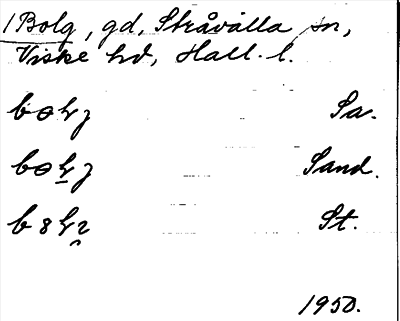 1 Bolg, gd, Stråvalla sn,
Viske hd, Hall. l.
Sa.
Sand.
St.
1950.